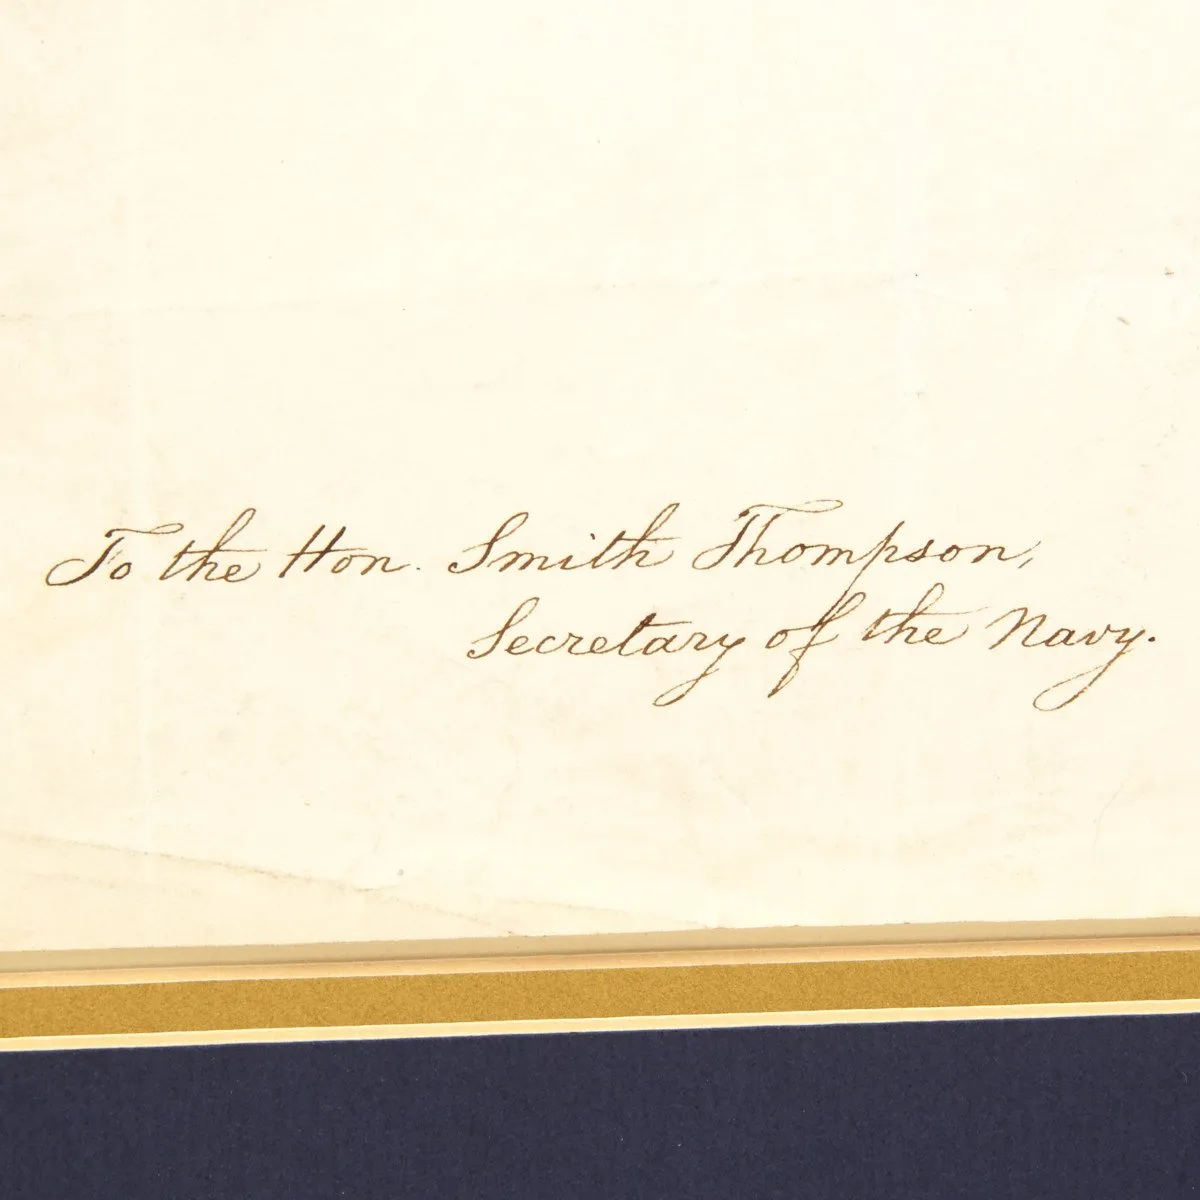 To the Hon. Smith Thompson,
Secretary of the Navy.